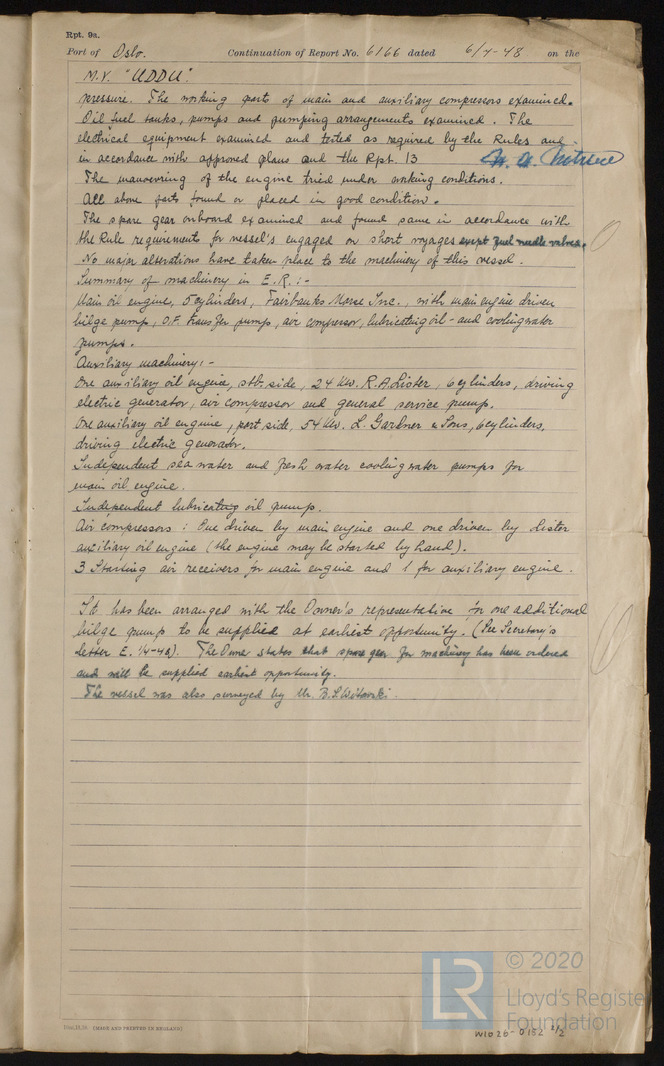 Rpt. 9a.
Port of Oslo. Continuation of Report No. 6166 dated 6/7-48 on the
M.V. "UDDU".
pressure. The working parts of main and auxiliary compressors examined.
Oil fuel tanks, pumps and pumping arrangements examined. The
electrical equipment examined and tested as required by the Rules and
in accordance with approved plans and the Rpt. 13
The manoevring of the engine tried under working conditions.
All above parts found or placed in good condition.
The spare gear onboard examined and found same in accordance with
the Rule requirements for vessel's engaged on short voyages exept fuel needle valves.
No major alterations have taken place to the machinery of this vessel.
Summary of machinery in E.R.:-
Main oil engine, 5 cylinders, Fairbanks Morse Inc., with main engine driven
bilge pump, O.F. transfer pump, air compressor, lubricating oil- and cooling water
pumps.
Auxiliary machinery:-
One auxiliary oil engine, stb. side, 24 Kw. R.A. Lister, 6 cylinders, driving
electric generator, air compressor and general service pump.
One auxiliary oil engine, port side, 54 Kw. L. Gardner & Sons, 6 cylinders,
driving electric generator.
Independent sea water and fresh water cooling water pumps for
main oil engine.
Independent lubricating oil pump.
Air compressors: One driven by main engine and one driven by Lister
auxiliary oil engine (the engine may be started by hand).
3 Starting air receivers for main engine and 1 for auxiliary engine.
It has been arranged with the Owner's representative for one additional
bilge pump to be supplied at earliest opportunity. (See Secretary's
letter E. 1/4-48). The Owner states that spare gear for machinery has been ordered
and will be supplied earliest opportunity.
The vessel was also surveyed by Mr. B.
(MADE AND PRINTED IN ENGLAND)
LR
© 2020
Lloyd's Registe
Foundation
W1026-0132 2/2